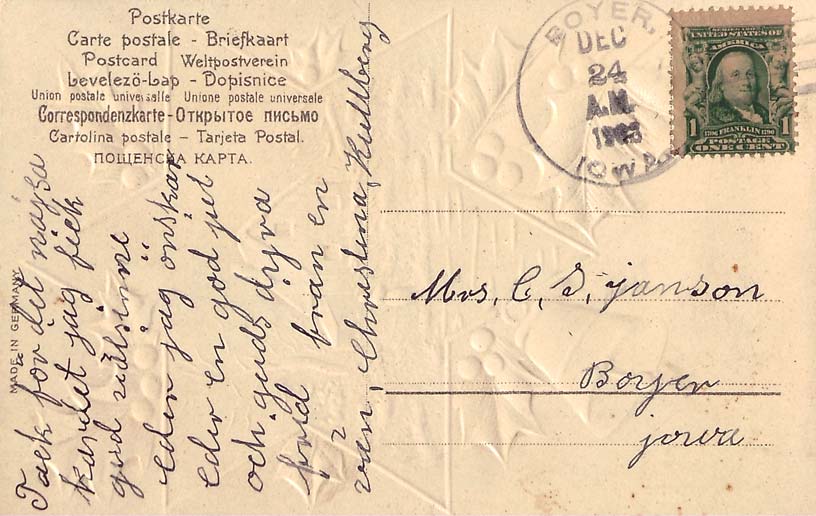 Postkarte
Carte postale - Briefkaart
Postcard Weltpostverein
Levelező-Lap - Dopisnice
Union postale universalle Unione postale universale
Correspondenzkarte - Открытое письмо
Cartolina postale - Tarjeta Postal.
ПОЩЕНСКА КАРТА.
MADE IN GERMANY
BOYER,
DEC
24
A.M.
IOWA
SERIES 1902
UNITED STATES OF
AMERICA
1706 FRANKLIN 1790
1 POSTAGE 1
ONE CENT
Tack for det någsa
kardet jag fick
gud
eder jag önskar
eder en god jul
och guds dyra
frid från en
vän, Christina Kullberg
Mrs. C. S. janson
Boyer
jowa